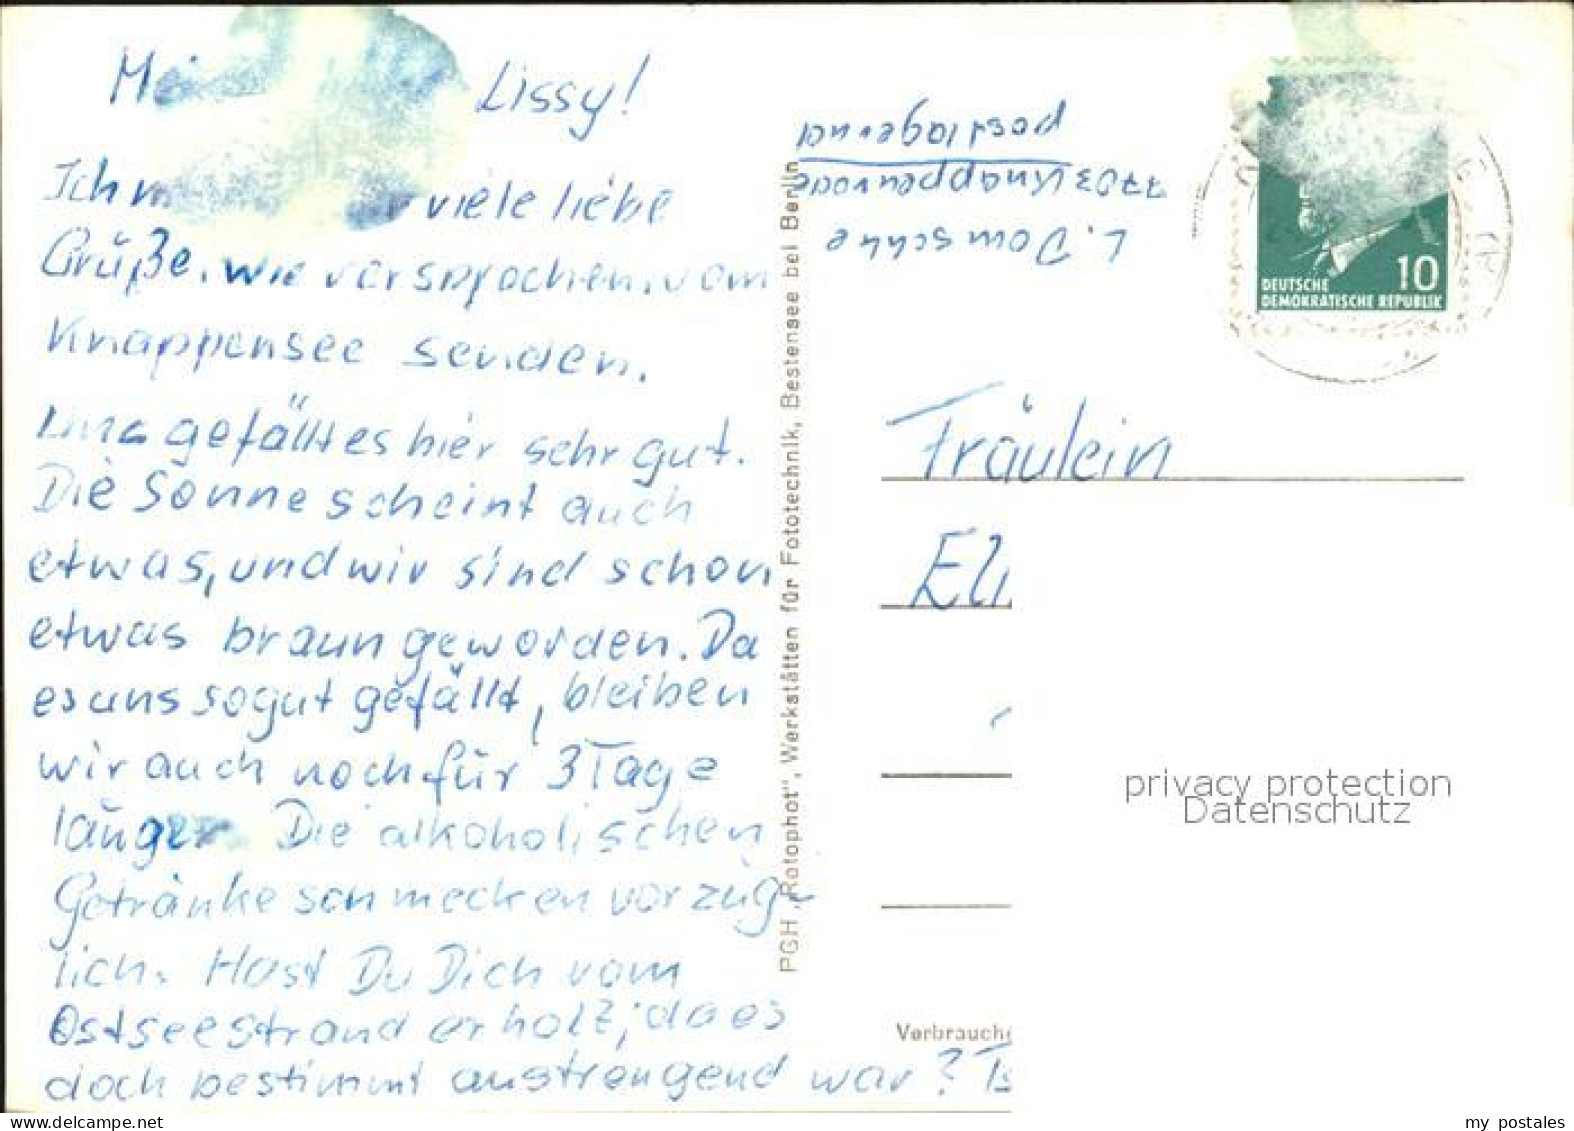 Lissy!
Ich viele liebe
Grüße, wie versprochen, vom
Knappensee senden.
Uns gefällt es hier sehr gut.
Die Sonne scheint auch
etwas, und wir sind schon
etwas braun geworden. Da
es uns so gut gefällt, bleiben
wir auch noch für 3 Tage
länger. Die alkoholischen
Getränke schmecken vorzüg-
lich. Hast Du Dich vom
Ostseestrand erholt, da es
doch bestimmt anstrengend war?
PGH „Rotophot“, Werkstätten für Fototechnik, Bestensee bei Berlin
L. Domschke
7703 Knappenrode
postlagernd
10
DEUTSCHE
DEMOKRATISCHE REPUBLIK
Fräulein
Verbrauche
privacy protection
Datenschutz
my postales